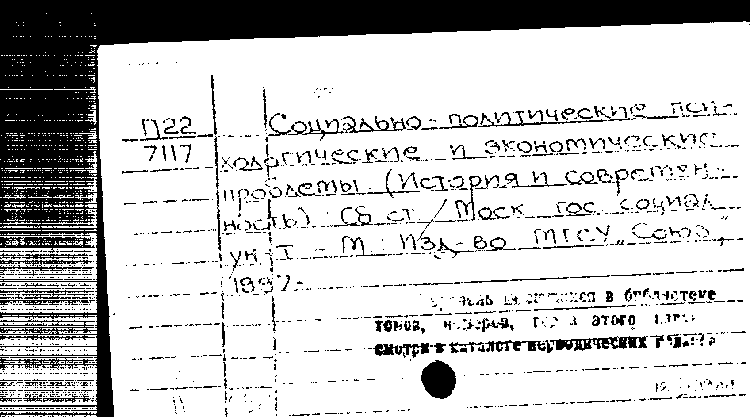 П22 Социально-политические пси-
7117 хологические и экономические
проблемы (История и современ-
ность): Сб ст / Моск гос социал
ун-т - М Изд-во МГСУ „Союз",
1997-
в библиотеке
томов, номеров, этого
смотри в каталоге периодических